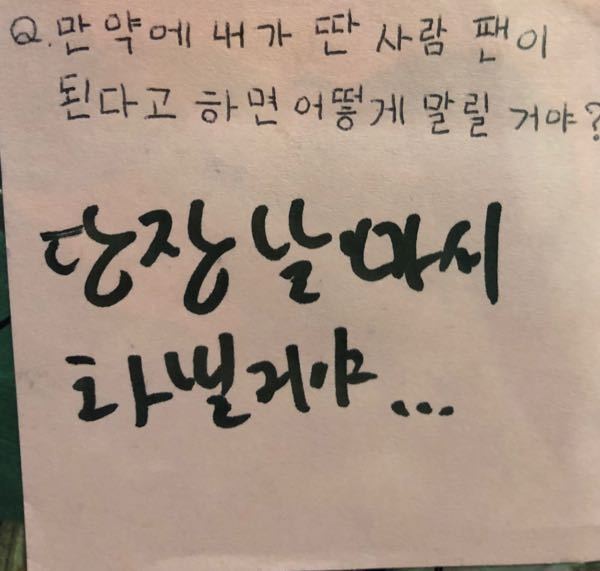 Q. 만약에 내가 딴 사람 팬이
된다고 하면 어떻게 말릴 거야?
당장 날 마시
화낼거야...